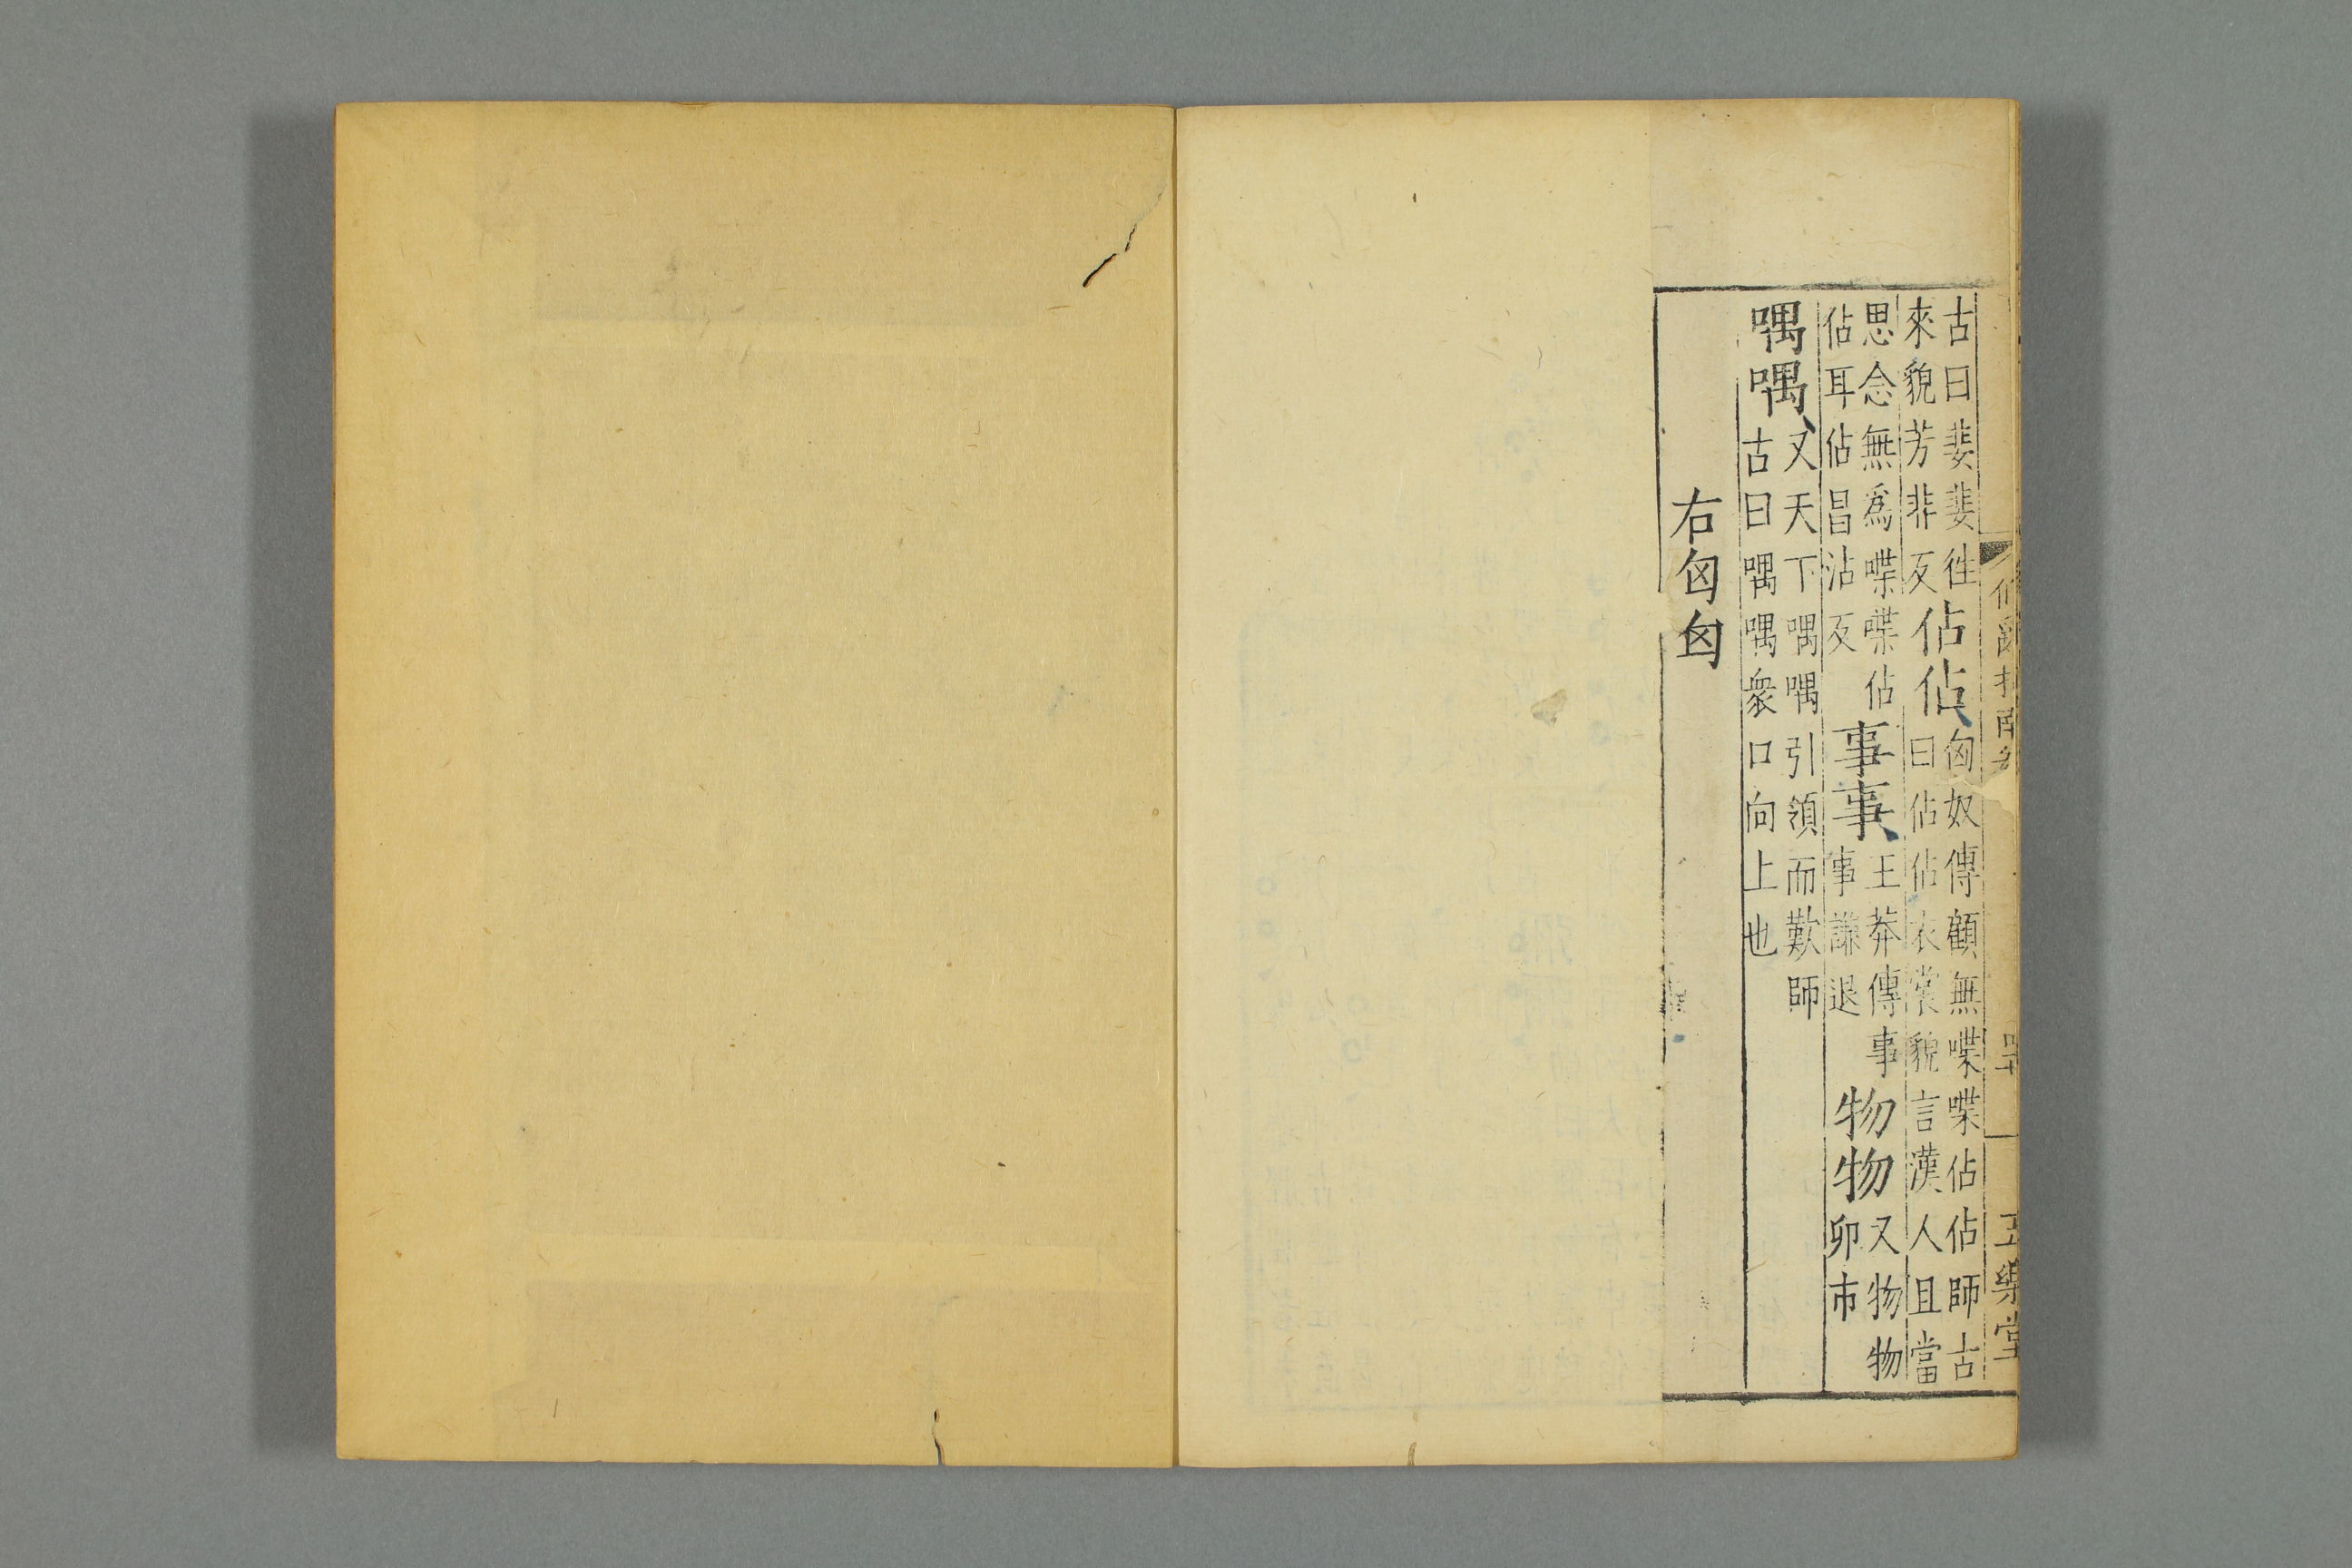 古曰婓婓徃
來貌芳非反
佔佔
匈奴傳顧無喋喋佔佔師古
曰佔佔衣裳貌言漢人且當
思念無爲喋喋佔
佔耳佔昌沾反
事事
王莽傳事
事謙退
物物
又物物
卯市
喁喁
又天下喁喁引領而歎師
古曰喁喁衆口向上也
右匈匈